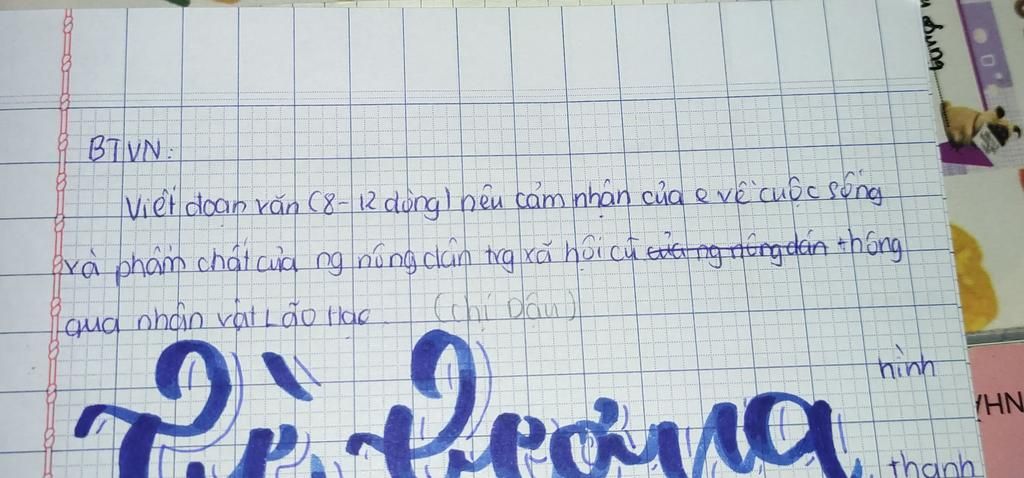 BTVN:
Viết đoạn văn (8-12 dòng) nêu cảm nhận của e về cuộc sống
và phẩm chất của ng nông dân trg xã hội cũ của ng nông dân thông
qua nhân vật Lão Hạc (chị Dậu)
hình
Từ tượng
thanh
dụng
/HN